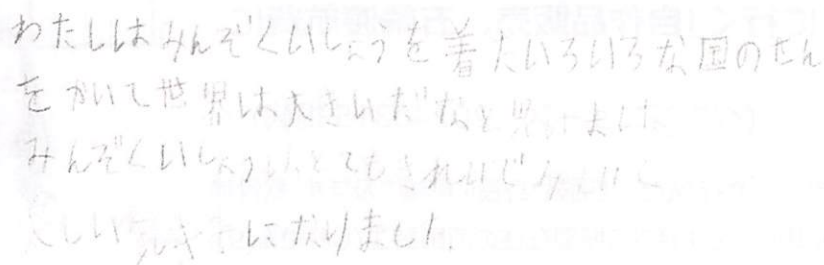 わたしはみんぞくいしょうを着たいろいろな国のせん
をかいて世界は大きいだなと思いました
みんぞくいしょうはとてもきれいで
しい気きになりました。